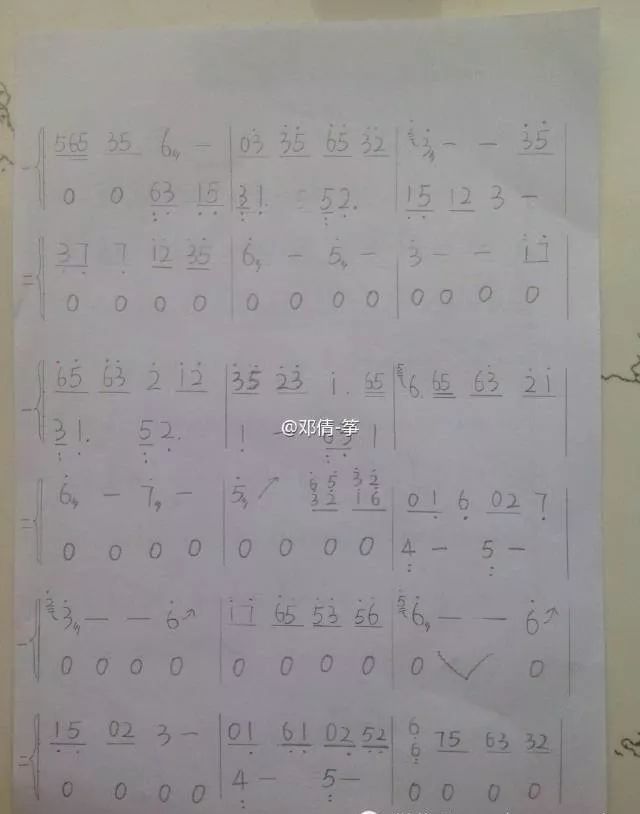 一 565 35 6 – | 03 35 65 32 | 3 – – 35 |
0 0 63 15 | 31. 52. | 15 12 3 – |
二 37 7 12 35 | 6 – 5 – | 3 – – 17 |
0 0 0 0 | 0 0 0 0 | 0 0 0 0 |
一 65 63 2 12 | 35 23 1. 65 | 6. 65 63 21 |
31. 52. | 1 – 1 |
@邓倩-筝
二 6 – 7 – | 5 ↗ 65 32 | 01 6 02 7 |
32 16
0 0 0 0 | 0 0 0 0 | 4 – 5 – |
一 3 – – 6 | 17 65 53 56 | 6 – – 6 |
0 0 0 0 | 0 0 0 0 | 0 0 |
二 15 02 3 – | 01 61 02 52 | 6 75 63 32 |
6
0 0 0 0 | 4 – 5 – | 0 0 0 0 |